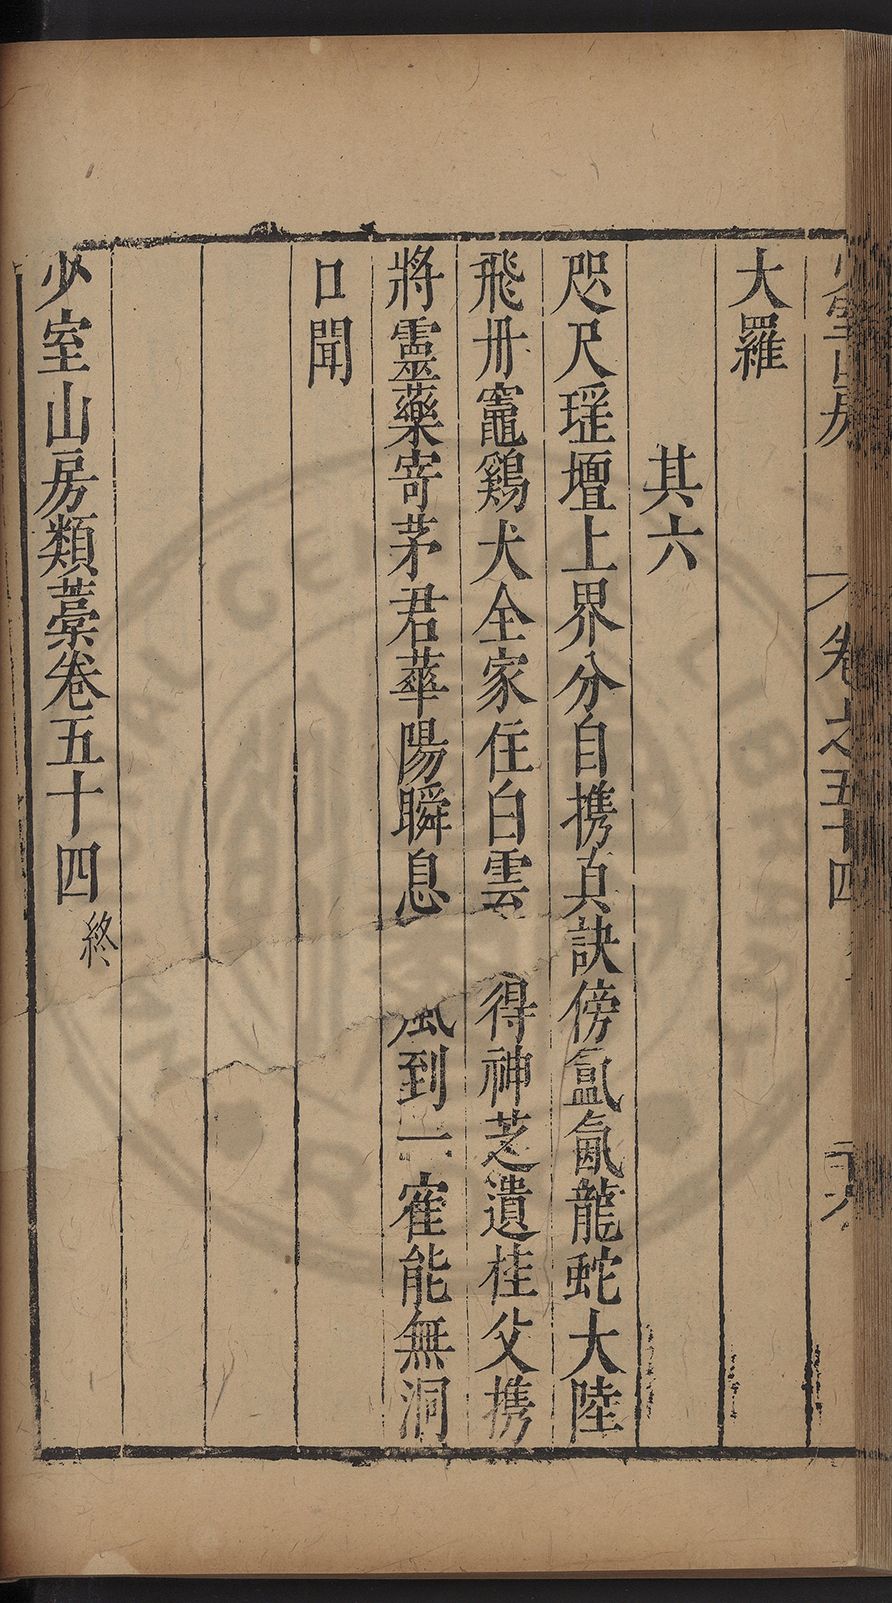 大羅
其六
咫尺瑶壇上界分自携真訣傍氤氳龍蛇大陸
飛丹竈鷄犬全家住白雲得神芝遺桂父携
將靈藥寄茅君華陽瞬息風到一寉能無洞
口聞
少室山房類藁卷五十四終
少室山房
卷之五十四